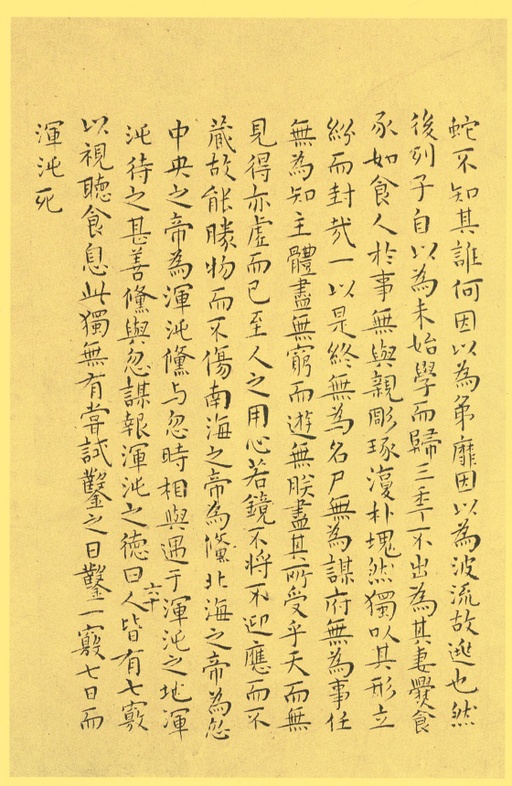 蛇不知其誰何因以為弟靡因以為波流故逃也然
後列子自以為未始學而歸三年不出為其妻爨食
豕如食人於事無與親彫琢復朴塊然獨以其形立
紛而封哉一以是終無為名尸無為謀府無為事任
無為知主體盡無窮而遊無朕盡其所受乎天而無
見得亦虛而已至人之用心若鏡不將不迎應而不
藏故能勝物而不傷南海之帝為儵北海之帝為忽
中央之帝為渾沌儵与忽時相與遇于渾沌之地渾
沌待之甚善儵與忽謀報渾沌之德曰人皆有七竅
以視聽食息此獨無有嘗試鑿之日鑿一竅七日而
渾沌死